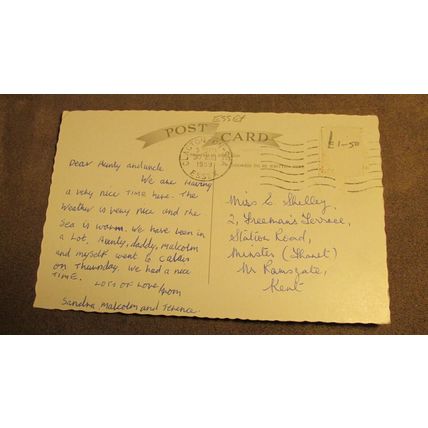 ESSEX
POST CARD
CLACTON-ON-SEA
ESSEX
£1-50
Dear Aunty and uncle
We are Having
a very nice TIME here. The
Weather is very nice and the
Sea is warm. We have been in
a lot. Aunty, daddy, Malcolm
and myself went to Calais
on Thursday. We had a nice
TIME.
LOTS OF LOVE from
Sandra, Malcolm and Terence
Miss E Shelley
2, Freeman's Terrace,
Station Road,
Minster (Thanet)
Nr Ramsgate,
Kent